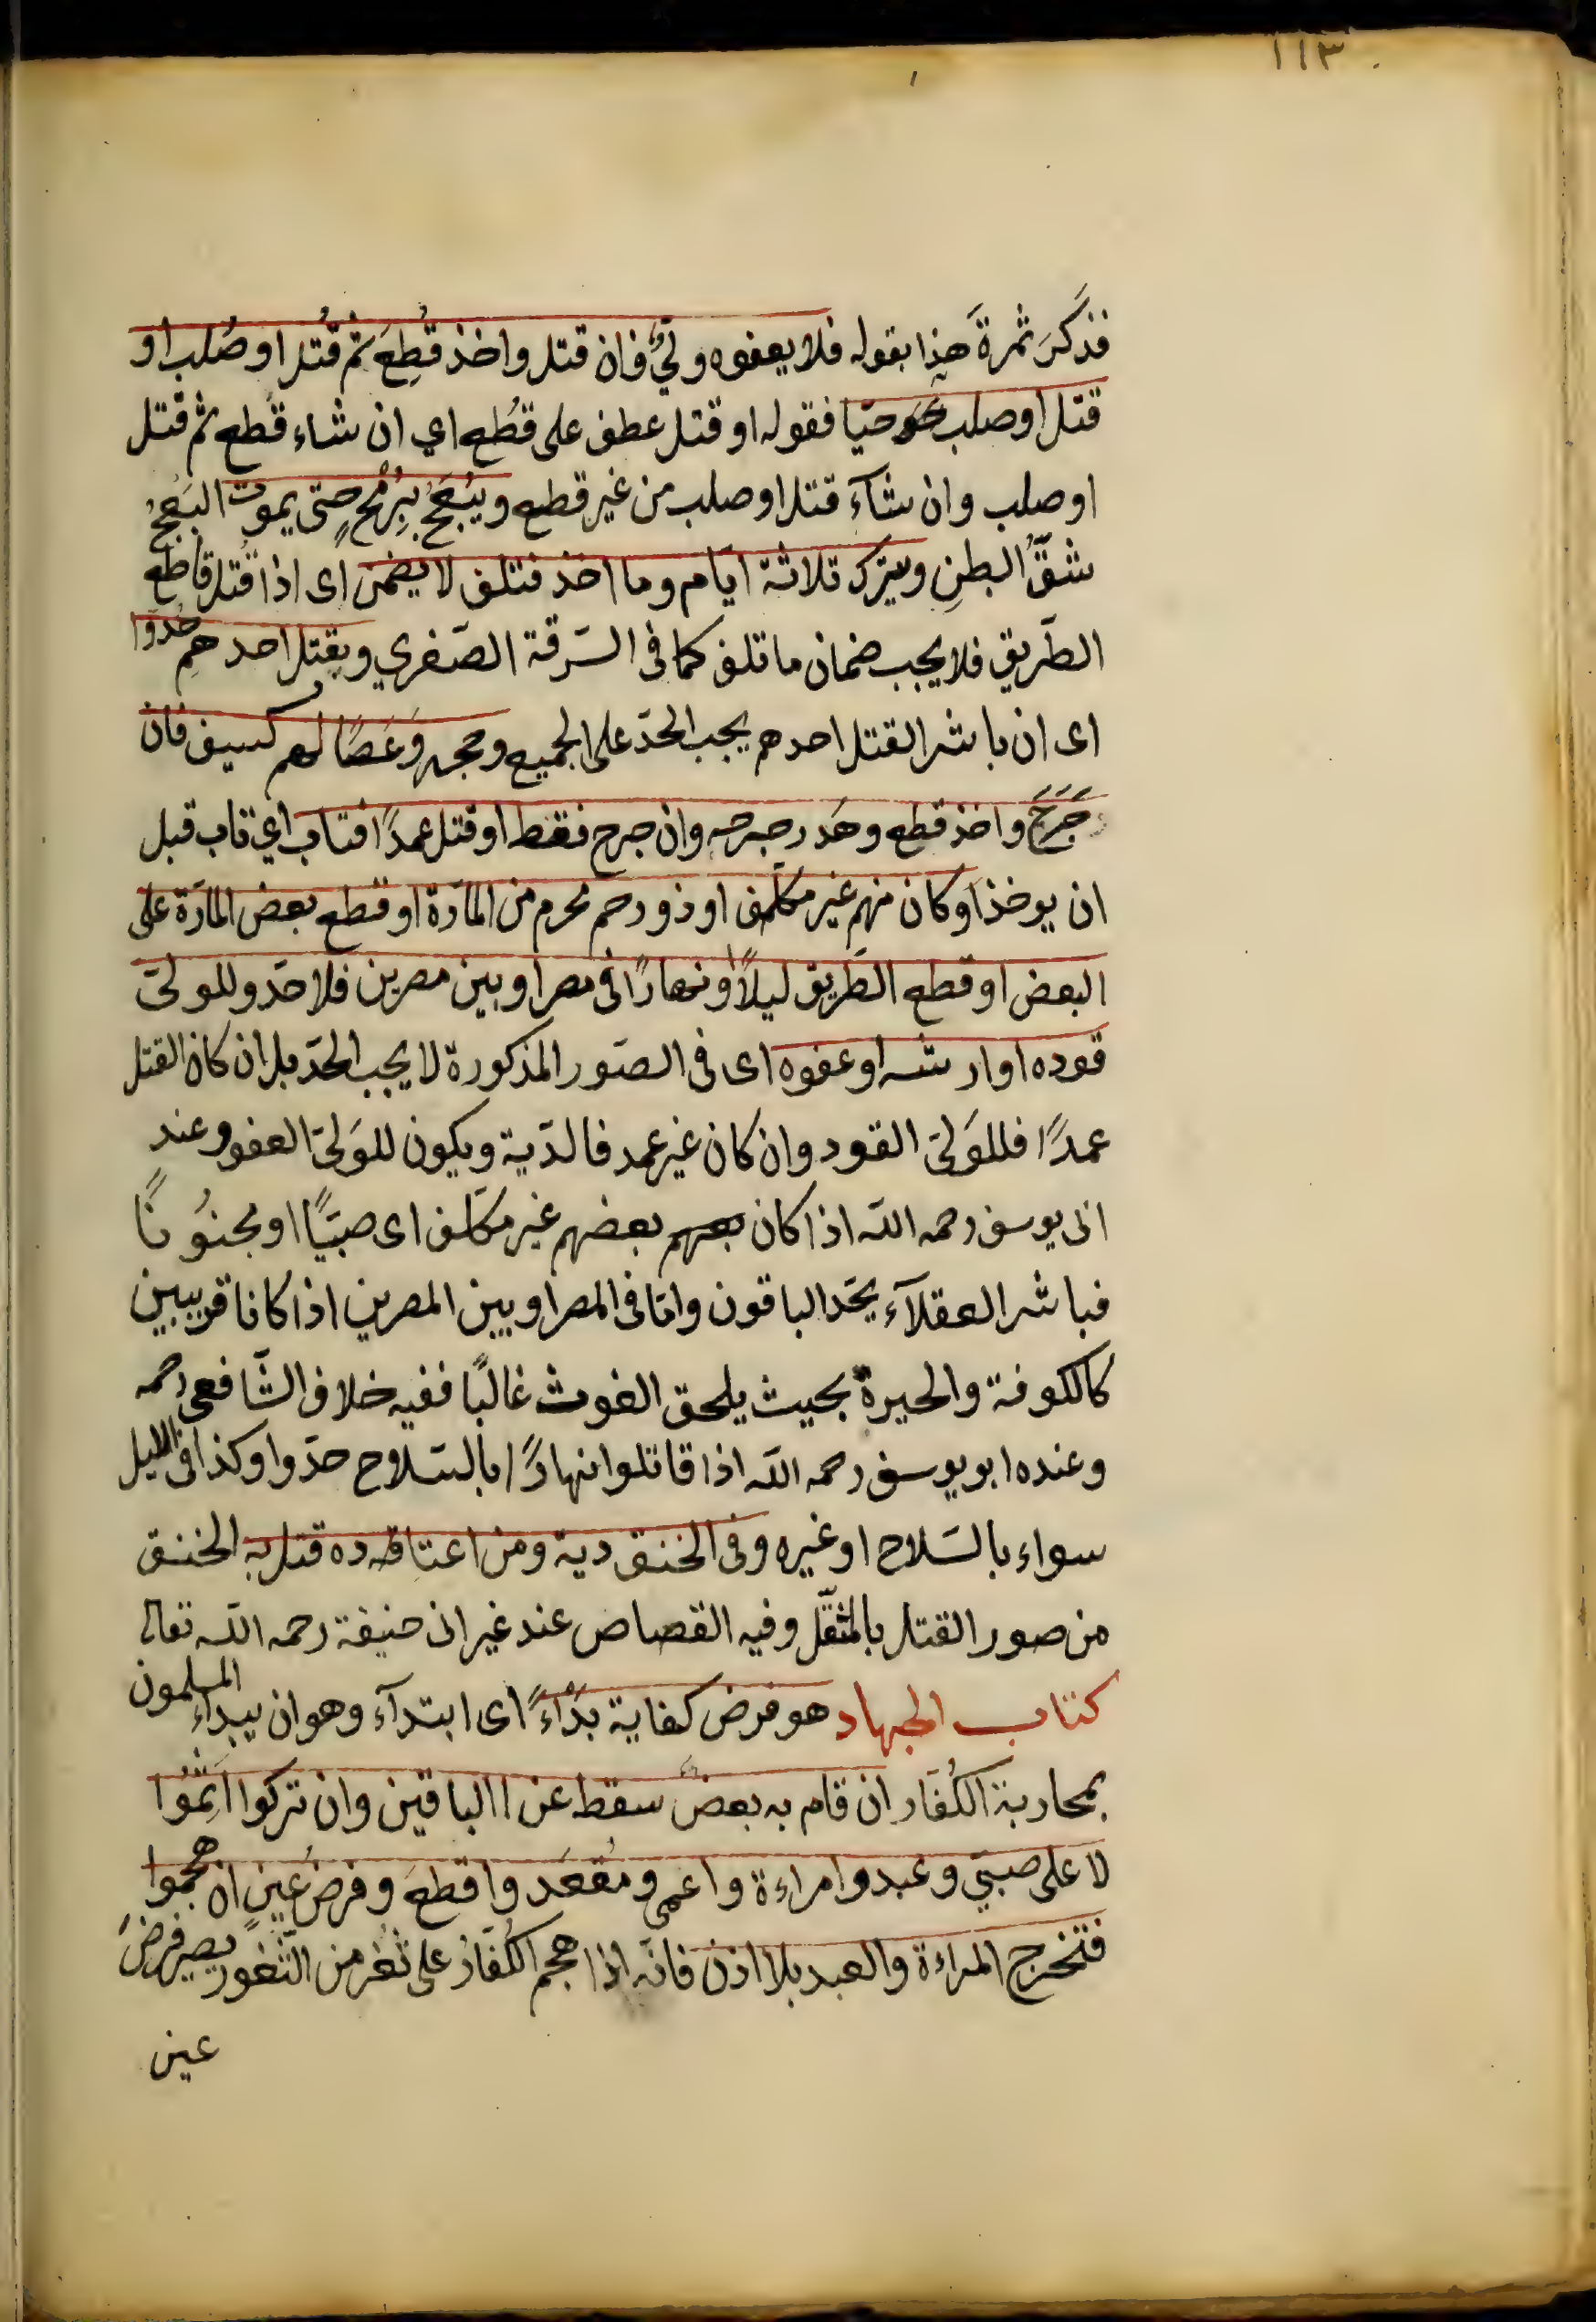 ١١٣
فذكَرَ ثمرةَ هذا بقوله فلا يعفوه وليٌّ فان قتل واخذ قُطِعَ ثم قُتل او صُلب او
قتل او صلب حيّا فقوله او قتل عطف على قُطع اي ان شاء قُطع ثم قتل
او صلب وان شآء قتل او صلب من غير قطع ويُبعَجُ بِرُمحٍ حتى يموت البَعْجُ
شقُّ البطنِ ويترك ثلاثة ايّام وما اخذ فتلف لا يضمن اى اذا قُتل قاطع
الطّريق فلا يجب ضمان ما تلف كما فى السّرقة الصّغري وبقتل احدهم حُدّوا
اى ان باشر القتل احدهم يجب الحدّ على الجميع وحجر وعَصًا لهم كسيف فان
جَرَحَ واخذ قطع وهَدر جرحه وان جرح فقط او قتل عمدًا فتاب اي تاب قبل
ان يوخذ او كان منهم غير مكلّف او ذو رحم محرم من المارّة او قطع بعض المارّة على
البعض او قطع الطّريق ليلًا او نهارًا فى مصر او بين مصرين فلا حدّ وللولىّ
قوده او ارشه او عفوه اى فى الصّور المذكورة لا يجب الحدّ بل ان كان القتل
عمدًا فللوَلىّ القود وان كان غير عمد فالدّية ويكون للوَلىّ العفو وعند
ابى يوسف رحمه اللّه اذا كان بعضهم غير مكلّف اى صبيًّا او مجنوُنًا
فباشر العقلآء يحّد الباقون وامّا فى المصر او بين المصرين اذا كانا قريبين
كالكوفة والحيرة بحيث يلحق الغوث غالبًا ففيه خلاف الشّافعى رحمه
وعنده ابو يوسف رحمه اللّه اذا قاتلوا نهارًا بالسّلاح حدّوا وكذا فى الليل
سواء بالسّلاح او غيره وفى الخنق دية ومن اعتاقه ده قتل به الخنق
من صور القتل بالمثقّل وفيه القصاص عند غير ابى حنيفة رحمه اللّه تعالى
كتاب الجهاد هو فرض كفاية بَدْاءً اى ابتدآء وهو ان يبداء المسلمون
بمحاربة الكُفّار ان قام به بعضٌ سقط عن االباقين وان تركوا اَثِمُوا
لا على صبيّ وعبد وامراءة واعمى ومُقعَد واقطعَ وفرضُ عينٍ ان هجموا
فتخرج المراءة والعبد بلا اذن فانّه اذا هجم الكُفّار على ثغر من الثّغور يصير فرضَ
عين